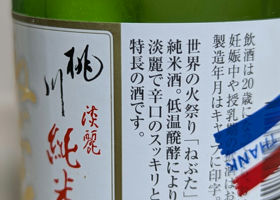 飲酒は20歳にな
妊娠中や授乳
製造年月はキャップに印字。
世界の火祭り「ねぶた」
純米酒。低温醗酵により
淡麗で辛口のスッキリと
特長の酒です。
桃川
淡麗
純米
THANK